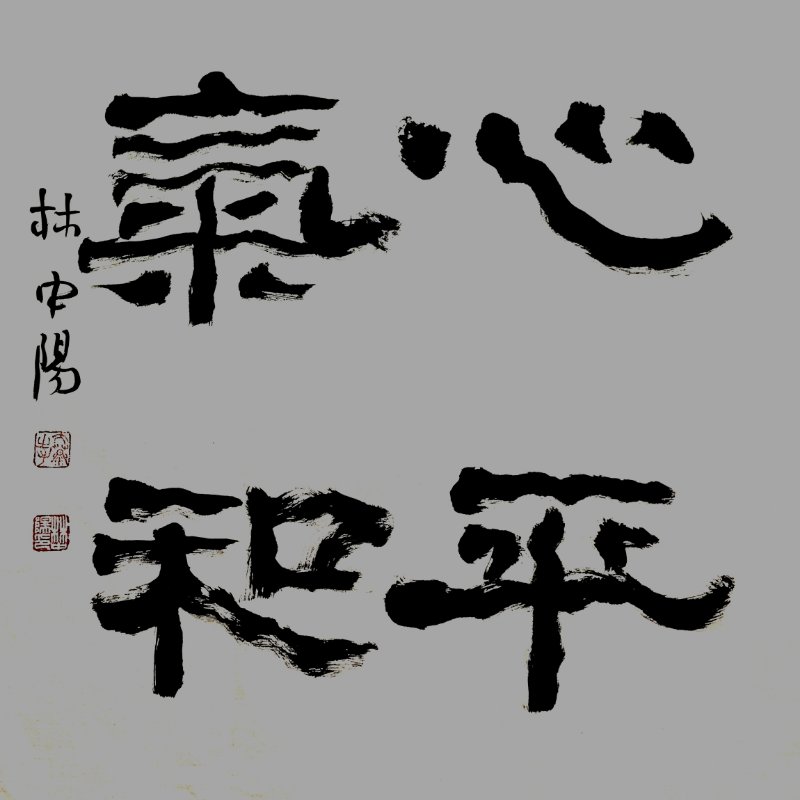 心平
氣和
林中陽